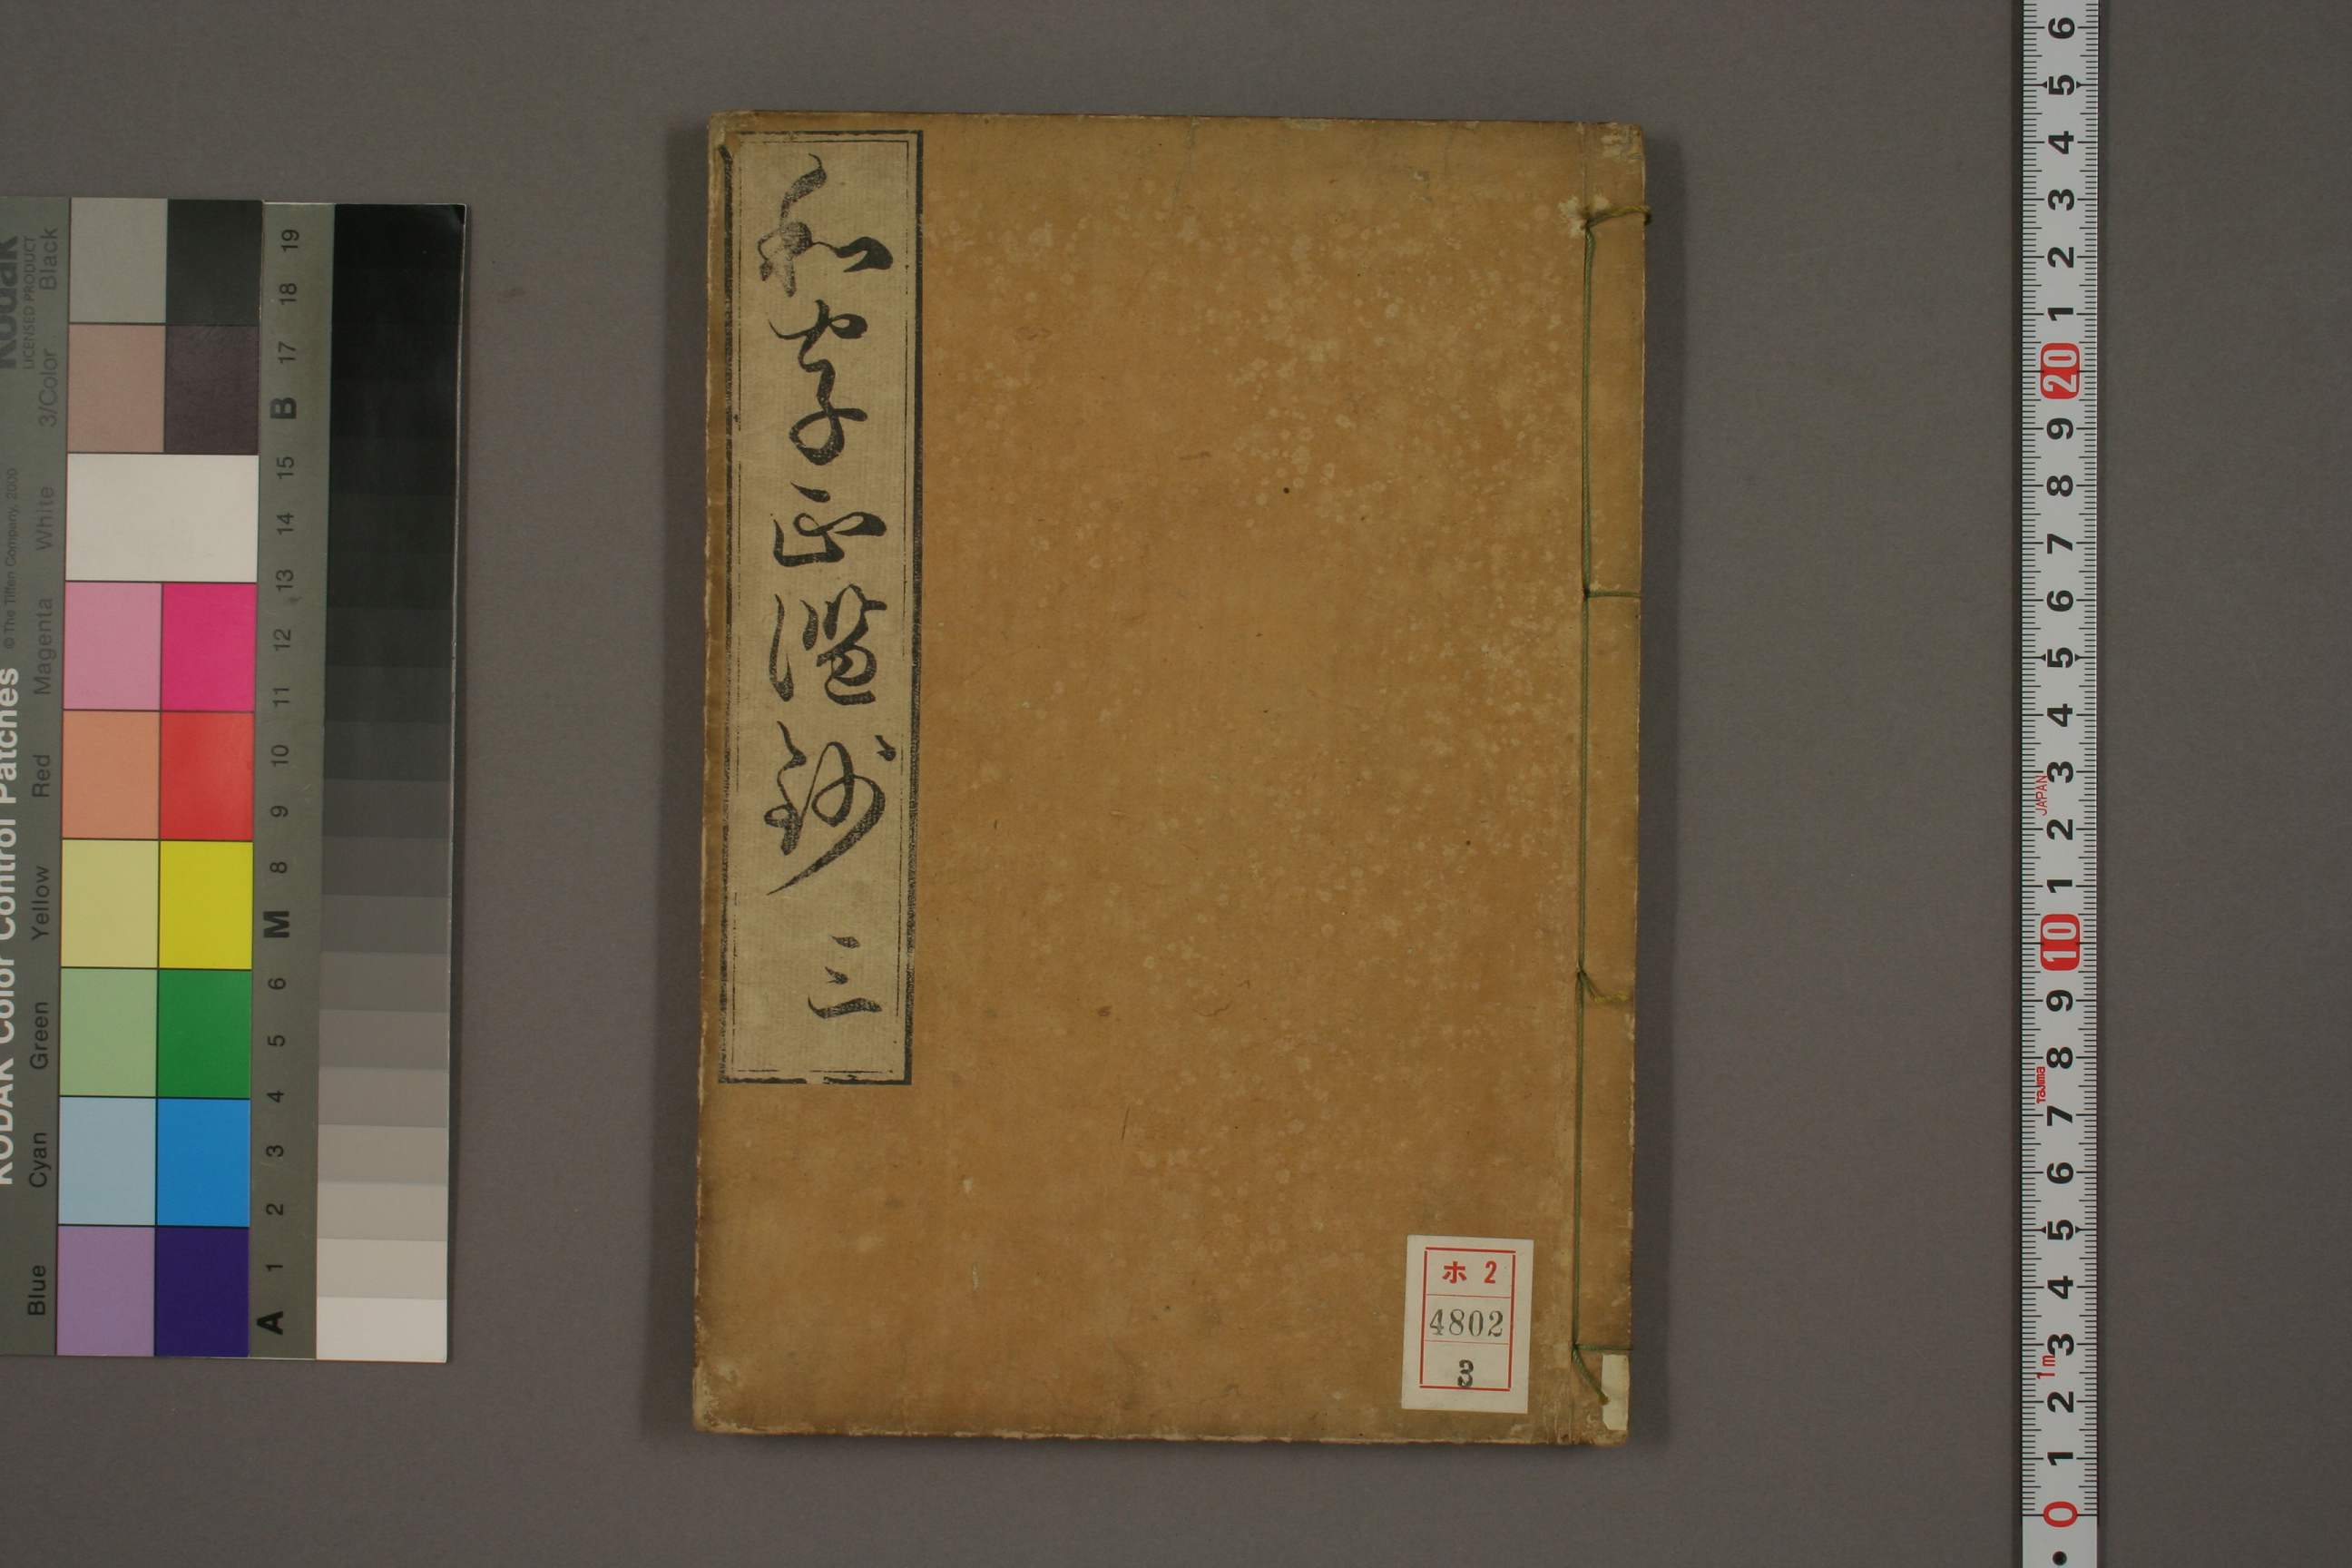 和字正濫鈔 三
ホ 2
4802
3
Kodak
LICENSED PRODUCT
KODAK Color Control Patches
© The Tiffen Company, 2000
Blue
Cyan
Green
Yellow
Red
Magenta
White
3/Color
Black
A 1 2 3 4 5 6 M 8 9 10 11 12 13 14 15 B 17 18 19
0 1 2 3 4 5 6 7 8 9 10 1 2 3 4 5 6 7 8 9 20 1 2 3 4 5 6
1m
Tajima
JAPAN